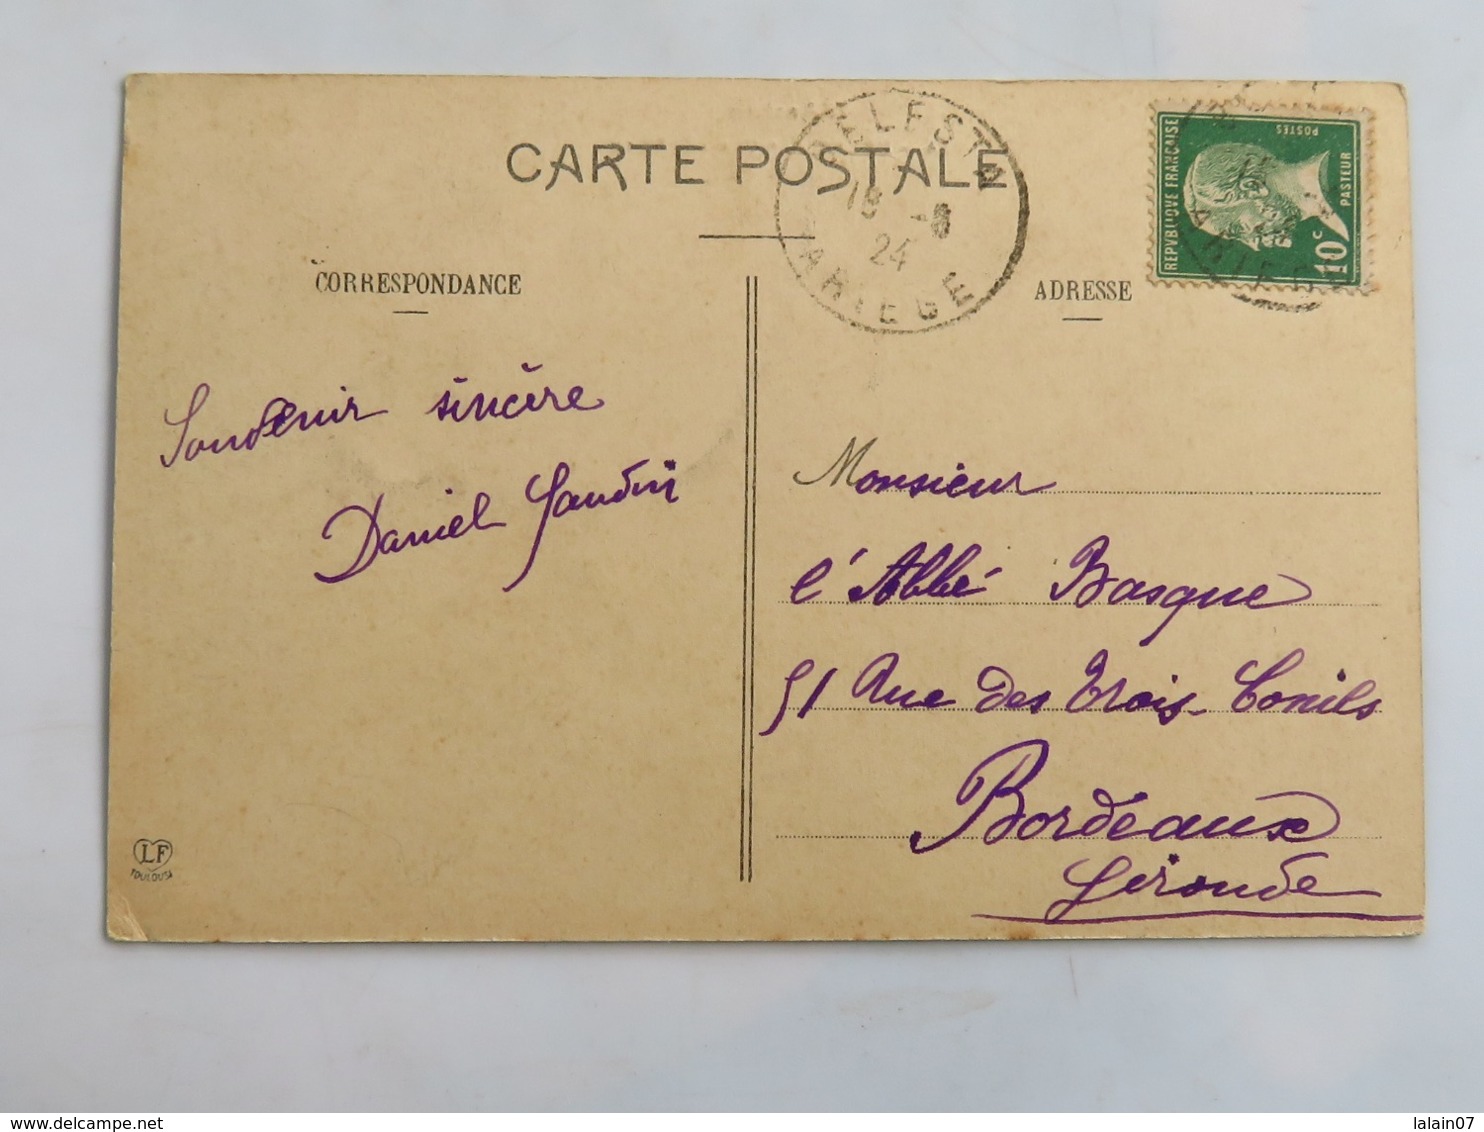 CARTE POSTALE
BELESTA
18 -8
24
ARIEGE
REPVBLIQVE FRANÇAISE
POSTES
PASTEUR
10c
ARIEGE
CORRESPONDANCE
Souvenir sincère
Daniel Gaudin
LF
TOULOUSE
ADRESSE
Monsieur
l'Abbé Basque
51 Rue des Trois-Conils
Bordeaux
Gironde
www.delcampe.net
lalain07